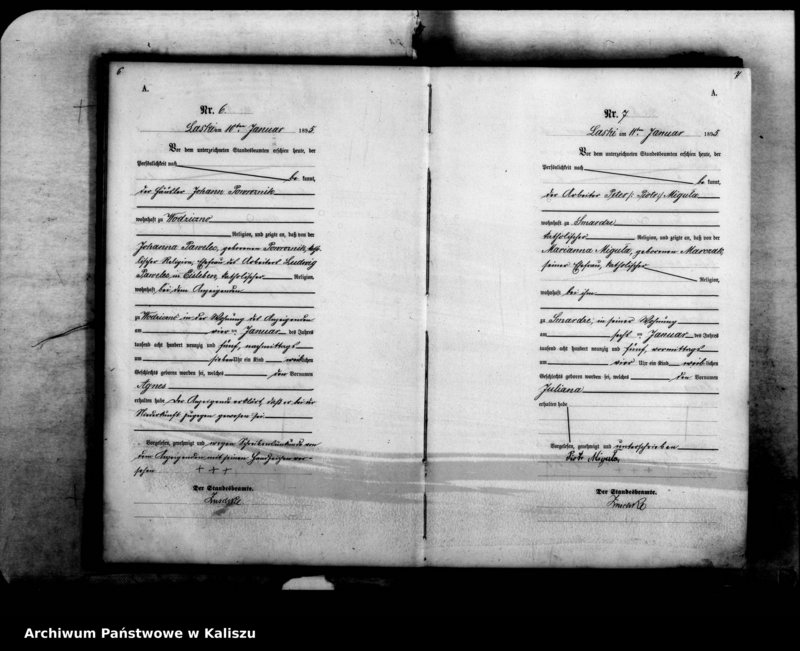 6
A.
Nr. 6.
Laski am 10ten Januar 1895
Vor dem unterzeichneten Standesbeamten erschien heute, der
Persönlichkeit nach
be kannt,
der Häusler Johann Powroznik
wohnhaft zu Wodziczno
Religion, und zeigte an, daß von der
Johanna Pawelec, geborenen Powroznik, katho-
lischer Religion, Ehefrau des Arbeiters Ludwig
Pawelec, in Eisleben, katholischer Religion
wohnhaft bei dem Anzeigenden
zu Wodziczno in der Wohnung des Anzeigenden
am vier ten Januar des Jahres
tausend acht hundert neunzig und fünf, nachmittags
um sieben Uhr ein Kind weiblichen
Geschlechts geboren worden sei, welches den Vornamen
Agnes
erhalten habe. Der Anzeigende erklärt, daß er bei der
Niederkunft zugegen gewesen sei.
Vorgelesen, genehmigt und wegen Schreibensunkunde von
dem Anzeigenden mit seinem Handzeichen ver-
sehen. + + +
Der Standesbeamte.
7
A.
Nr. 7
Laski am 11ten Januar 1895
Vor dem unterzeichneten Standesbeamten erschien heute, der
Persönlichkeit nach
be kannt,
der Arbeiter Peter /: Piotr :/ Migula
wohnhaft zu Smardze
katholischer Religion, und zeigte an, daß von der
Marianna Migula, geborenen Marczak
seiner Ehefrau, katholischer
Religion,
wohnhaft bei ihm
zu Smardze, in seiner Wohnung
am sechs ten Januar des Jahres
tausend acht hundert neunzig und fünf, vormittags
um vier Uhr ein Kind weiblichen
Geschlechts geboren worden sei, welches den Vornamen
Juliana
erhalten habe
Vorgelesen, genehmigt und unterschrieben
Piotr Migula
Der Standesbeamte.
Archiwum Państwowe w Kaliszu